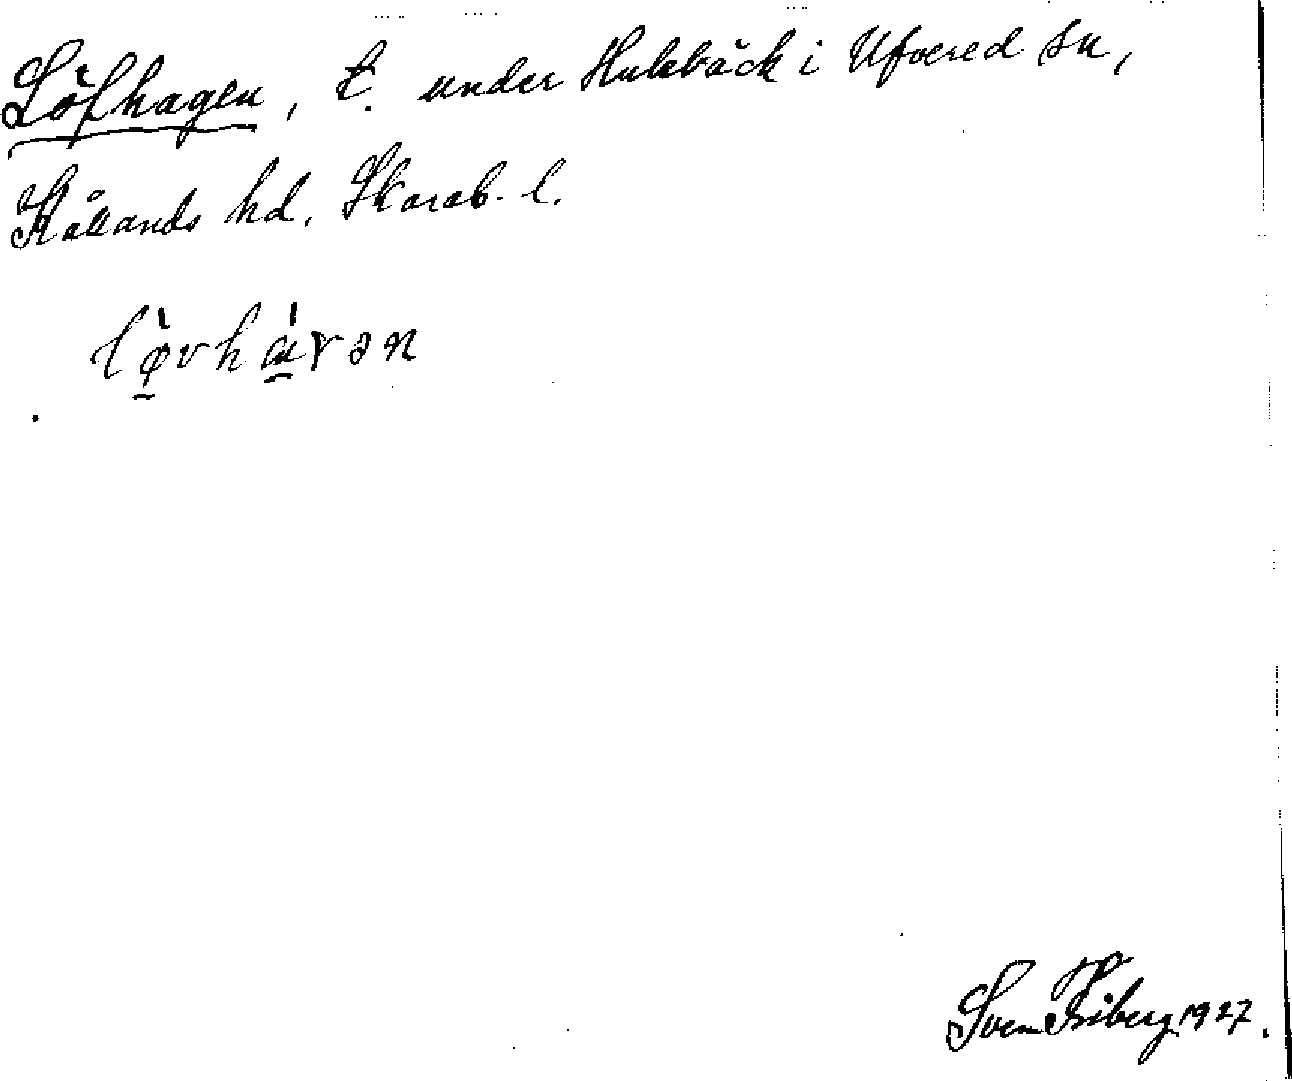 Löfhagen, t. under Hulebäck i Ufvered sn,
Kållands hd. Skarab. l.
lø̀vhɑ́ɣən
Sven Friberg 1927.